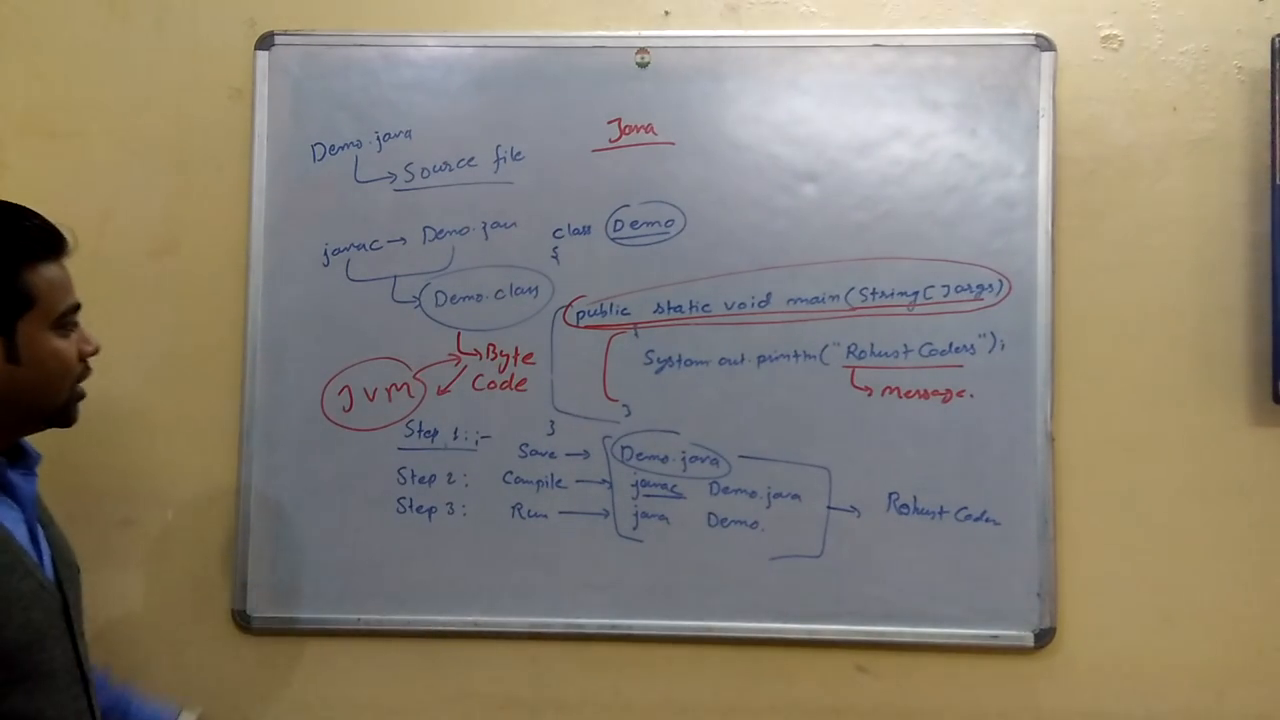 Java
Demo.java
Source file
javac → Demo.jav
Demo.class
Byte
Code
JVM
class Demo
{
public static void main(String[]args)
{
System.out.println("Robust Coders");
message.
}
}
Step 1:- Save → Demo.java
Step 2: Compile → javac Demo.java
Step 3: Run → java Demo.
→ Robust Coder